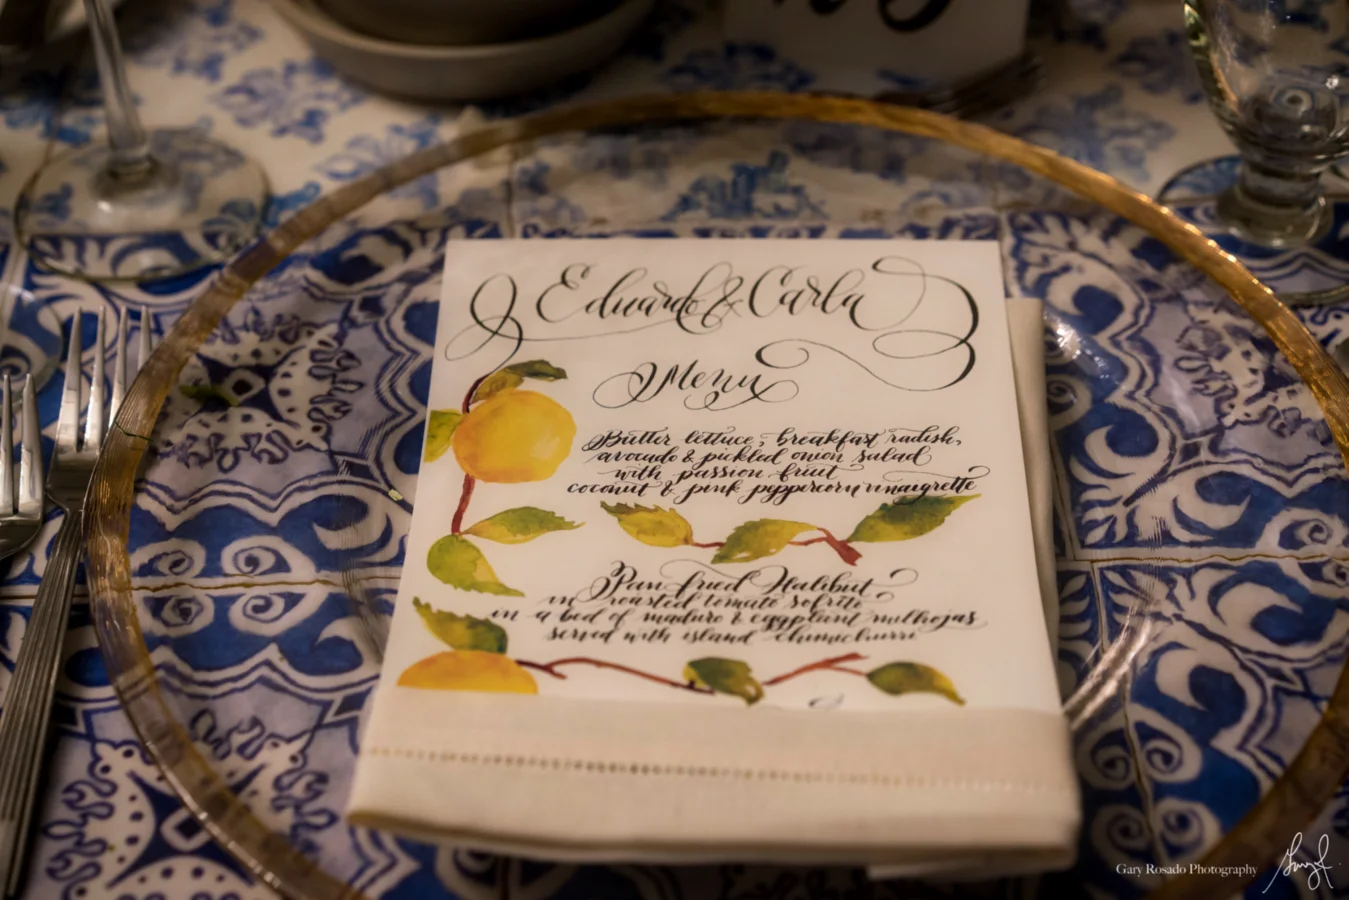 Eduardo & Carla
Menu
Butter lettuce, breakfast radish,
avocado & pickled onion salad
with passion fruit
coconut & pink peppercorn vinaigrette
Pan-fried Halibut,
in roasted tomato sofrito
in a bed of maduro & eggplant milhojas
served with island chimichurri
Gary Rosado Photography